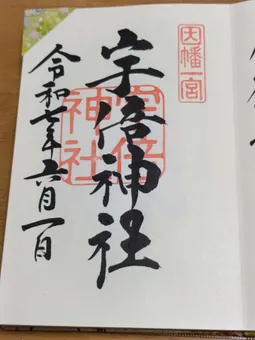 因幡一宮
宇倍神社
宇倍神社
令和七年六月一日